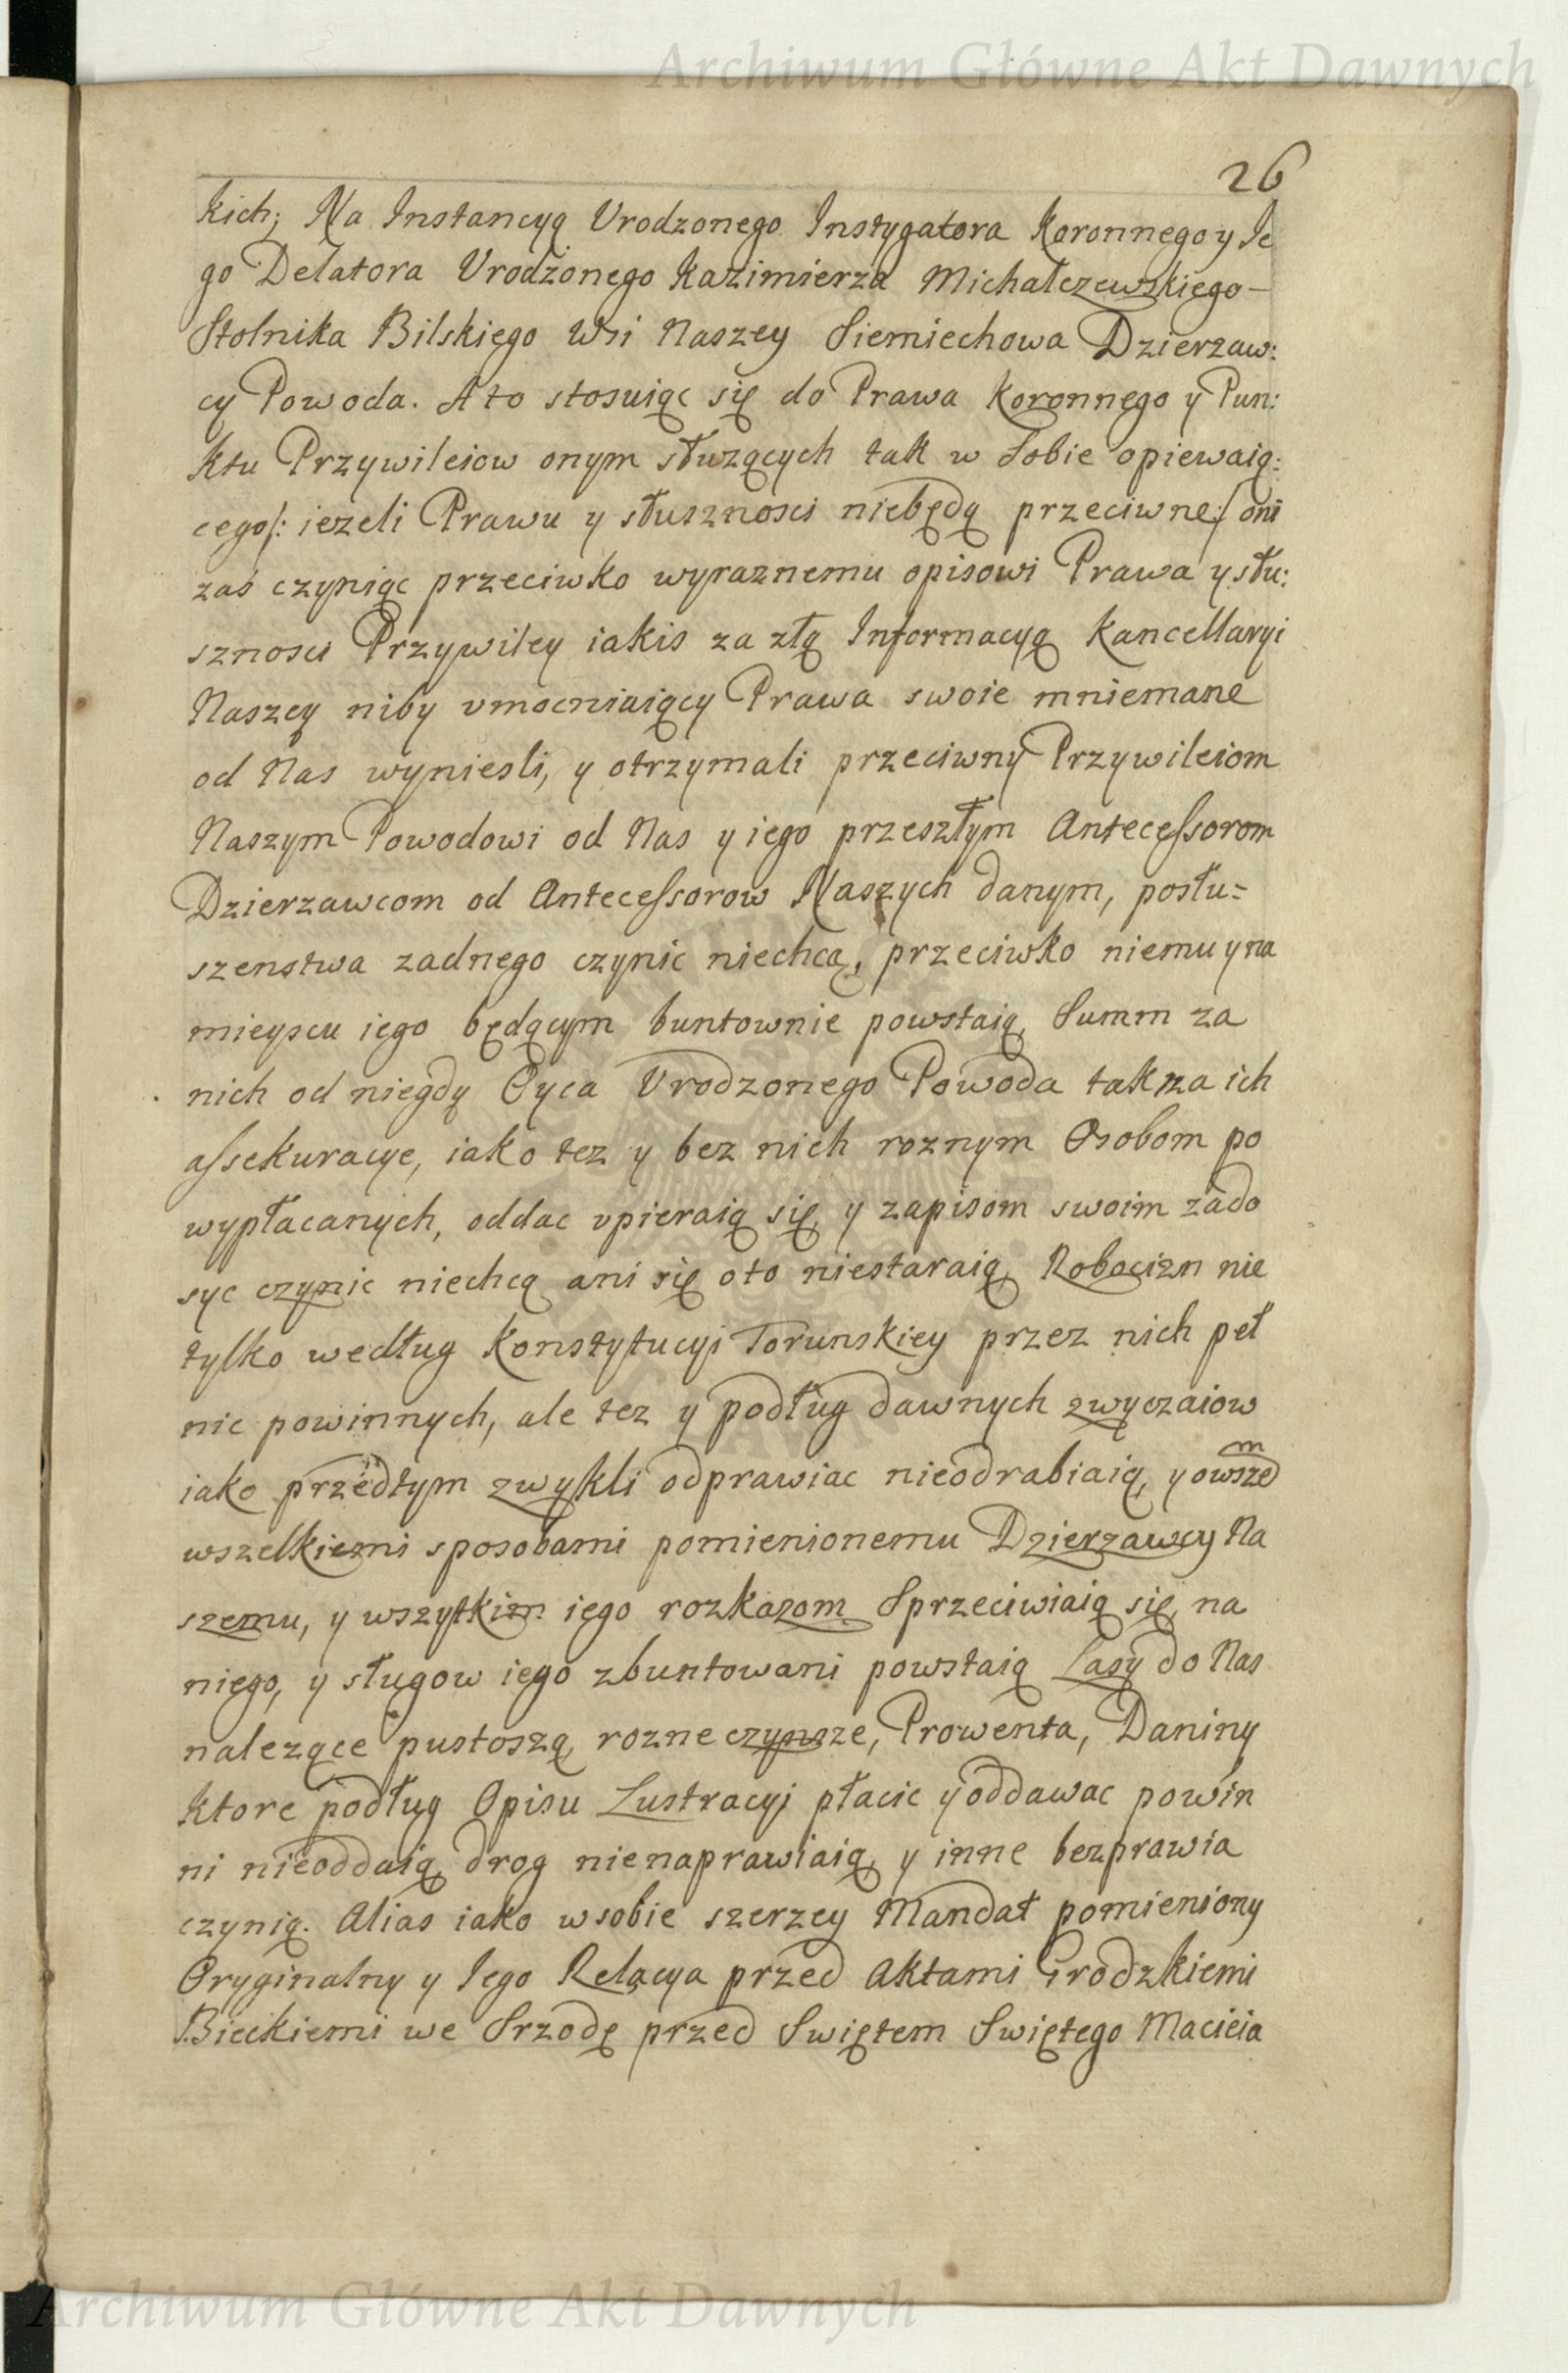 Archiwum Główne Akt Dawnych
26
kich; Na Instancyą Urodzonego Instygatora Koronnego y Je
go Delatora Urodzonego Kazimierza Michałczewskiego –
Stolnika Bilskiego Wsi Naszey Siemiechowa Dzierzaw:
cy Powoda. A to stosuiąc się do Prawa Koronnego y Pun:
ktu Przywileiow onym słuzących tak w Sobie opiewaią:
cego/: iezeli Prawu y słusznosci niebędą przeciwne:/ oni
zaś czyniąc przeciwko wyraznemu opisowi Prawa y słu:
sznosci Przywiley iakis za złą Informacyą Kancellaryi
Naszey niby umacniaiący Prawa swoie mniemane
od Nas wyniesli, y otrzymali przeciwny Przywileiom
Naszym Powodowi od Nas y iego przeszłym Antecessorom
Dzierzawcom od Antecessorow Naszych danym, posłu=
szenstwa zadnego czynic niechcą, przeciwko niemu y na
mieyscu iego będącym buntownie powstaią, Summ za
nich od niegdy Oyca Urodzonego Powoda tak za ich
assekuracye, iako tez y bez nich roznym Osobom po
wypłacanych, oddac upieraią się, y zapisom swoim zado
syc czynic niechcą ani się oto niestaraią, Robocizn nie
tylko według Konstytucyi Torunskiey przez nich peł
nic powinnych, ale tez y podług dawnych zwyczaiow
iako przedtym zwykli odprawiac nieodrabiaią, y owsze m
wszelkiemi sposobami pomienionemu Dzierzawcy Na
szemu, y wszytkim iego rozkazom Sprzeciwiaią się, na
niego, y sługow iego zbuntowani powstaią Lasy do Nas
nalezące pustoszą, rozne czynsze, Prowenta, Daniny
ktore podług Opisu Lustracyi płacic y oddawac powin
ni nieoddaią, drog nienaprawiaią, y inne bezprawia
czynią. Alias iako w sobie szerzey Mandat pomieniony
Oryginalny y Jego Relacya przed Aktami Grodzkiemi
Bieckiemi we Srzodę przed Swiętem Swiętego Macieia
Archiwum Główne Akt Dawnych